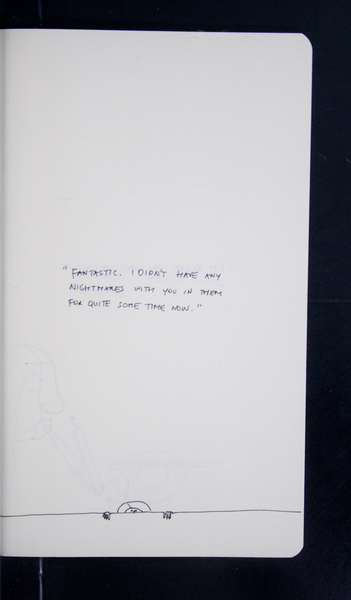 "FANTASTIC. I DIDN'T HAVE ANY
NIGHTMARES WITH YOU IN THEM
FOR QUITE SOME TIME NOW."